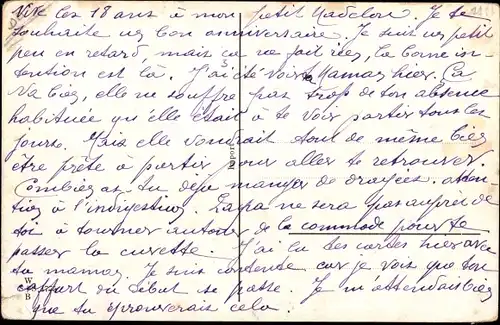 Vive les 18 ans à mon petit Madelon. Je te
souhaite un bon anniversaire. Je suis un petit
peu en retard, mais ça ne fait rien, la bonne in-
tention est là. J'ai été voir ta Maman hier. Ça
va bien, elle ne souffre pas trop de ton absence
habituée qu'elle était à te voir partir tous les
jours. Mais elle voudrait tout de même bien
être prête à partir pour aller te retrouver.
Combien as-tu déjà manger de dragées. atten
tion à l'indigestion. Papa ne sera pas auprès de
toi à tourner autour de la commode pour te
passer la cuvette. J'ai lu tes cartes hier avec
ta maman. Je suis contente car je vois que ton
du début se passe. Je m'attendais bien
que tu éprouverais cela.
Import
W
B
3